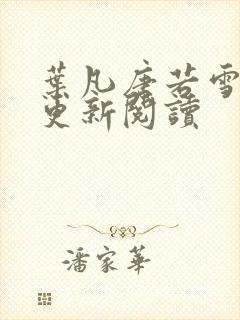 葉凡唐若雪
更新閱讀
潘家華